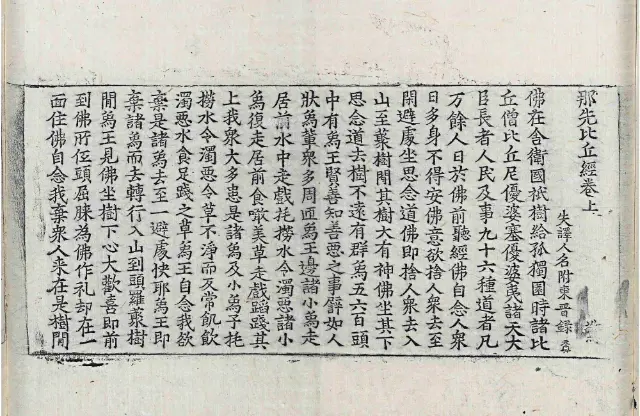 那先比丘經卷上
失譯人名附東晉錄
佛在舍衛國祇樹給孤獨園時諸比
丘僧比丘尼優婆塞優婆夷諸天大
臣長者人民及事九十六種道者凡
万餘人日於佛前聽經佛自念人衆
日多身不得安佛意欲捨人衆去至
閑避處坐思念道佛即捨人衆去入
山至藂樹間其樹大有神佛坐其下
思念道去樹不遠有群象五六百頭
中有象王賢善知善惡之事譬如人
狀象輩衆多周匝象王邊諸小象走
居前水中走戲托撈水令濁惡諸小
象復走居前食噉美草走戲蹈踐其
上我衆大多患是諸象及小象子托
撈水令濁惡令草不淨而反常飢飲
濁惡水食足踐之草象王自念我欲
棄是諸象去至一避處快耶象王即
棄諸象而去轉行入山到頭羅藂樹
間象王見佛坐樹下心大歡喜即前
到佛所伍頭屈膝為佛作礼却在一
面住佛自念我棄衆人來在是樹間